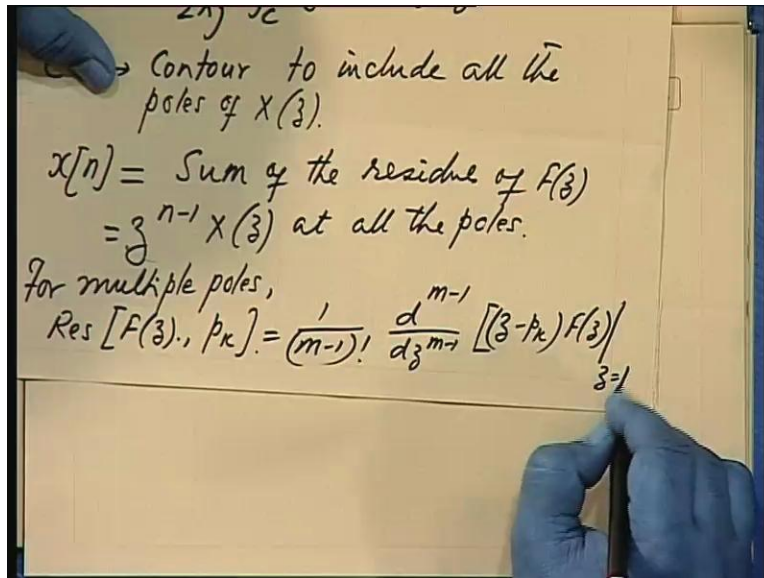 C → Contour to include all the
poles of X(z).
x[n] = Sum of the residue of F(z)
= z^{n-1} X(z) at all the poles.
For multiple poles,
Res [F(z)., p_k]. = 1/(m-1)! d^{m-1}/dz^{m-1} [(z-p_k) F(z)|
z=